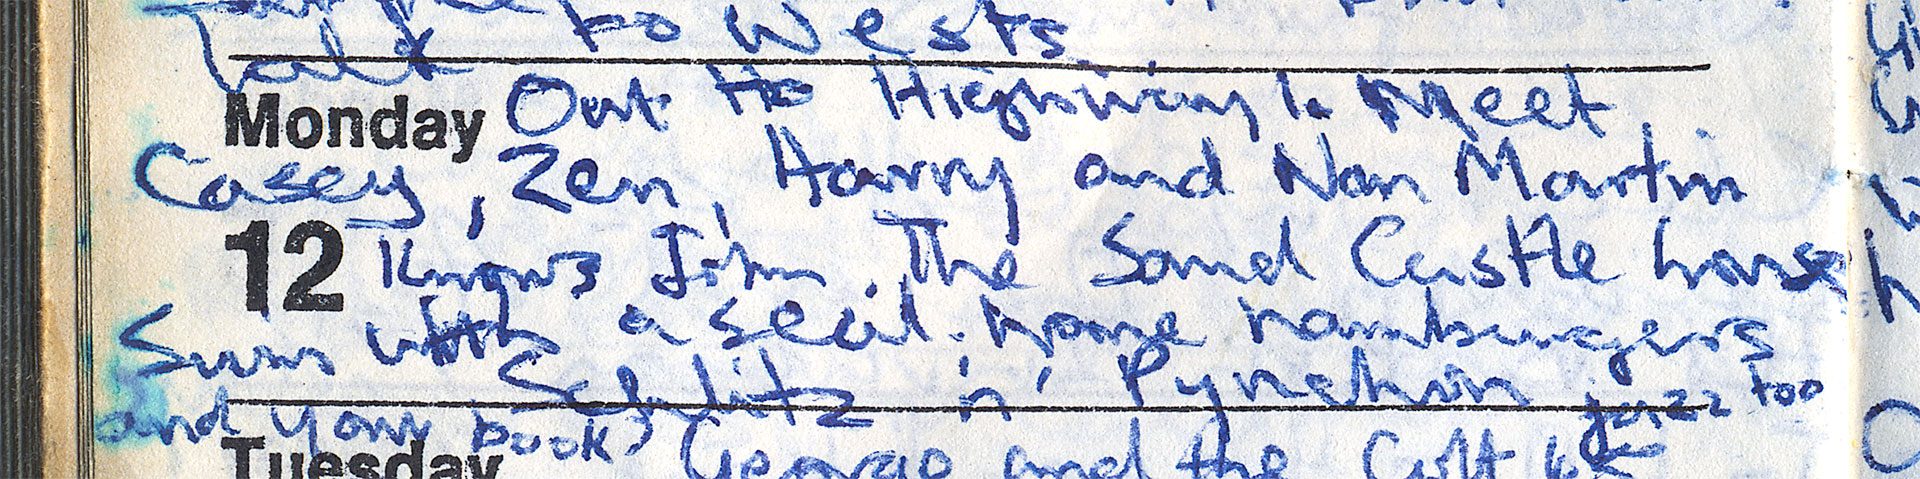 to Wests
Talk
Monday Out to Highway 1. Meet
Casey, Zen, Harry and Nan Martin
12 Knows John. The Sand Castle house
Swim with a seal. home hamburgers
Schlitz 'n' Pynchon jazz too
and your book
Tuesday George and the Colt 45